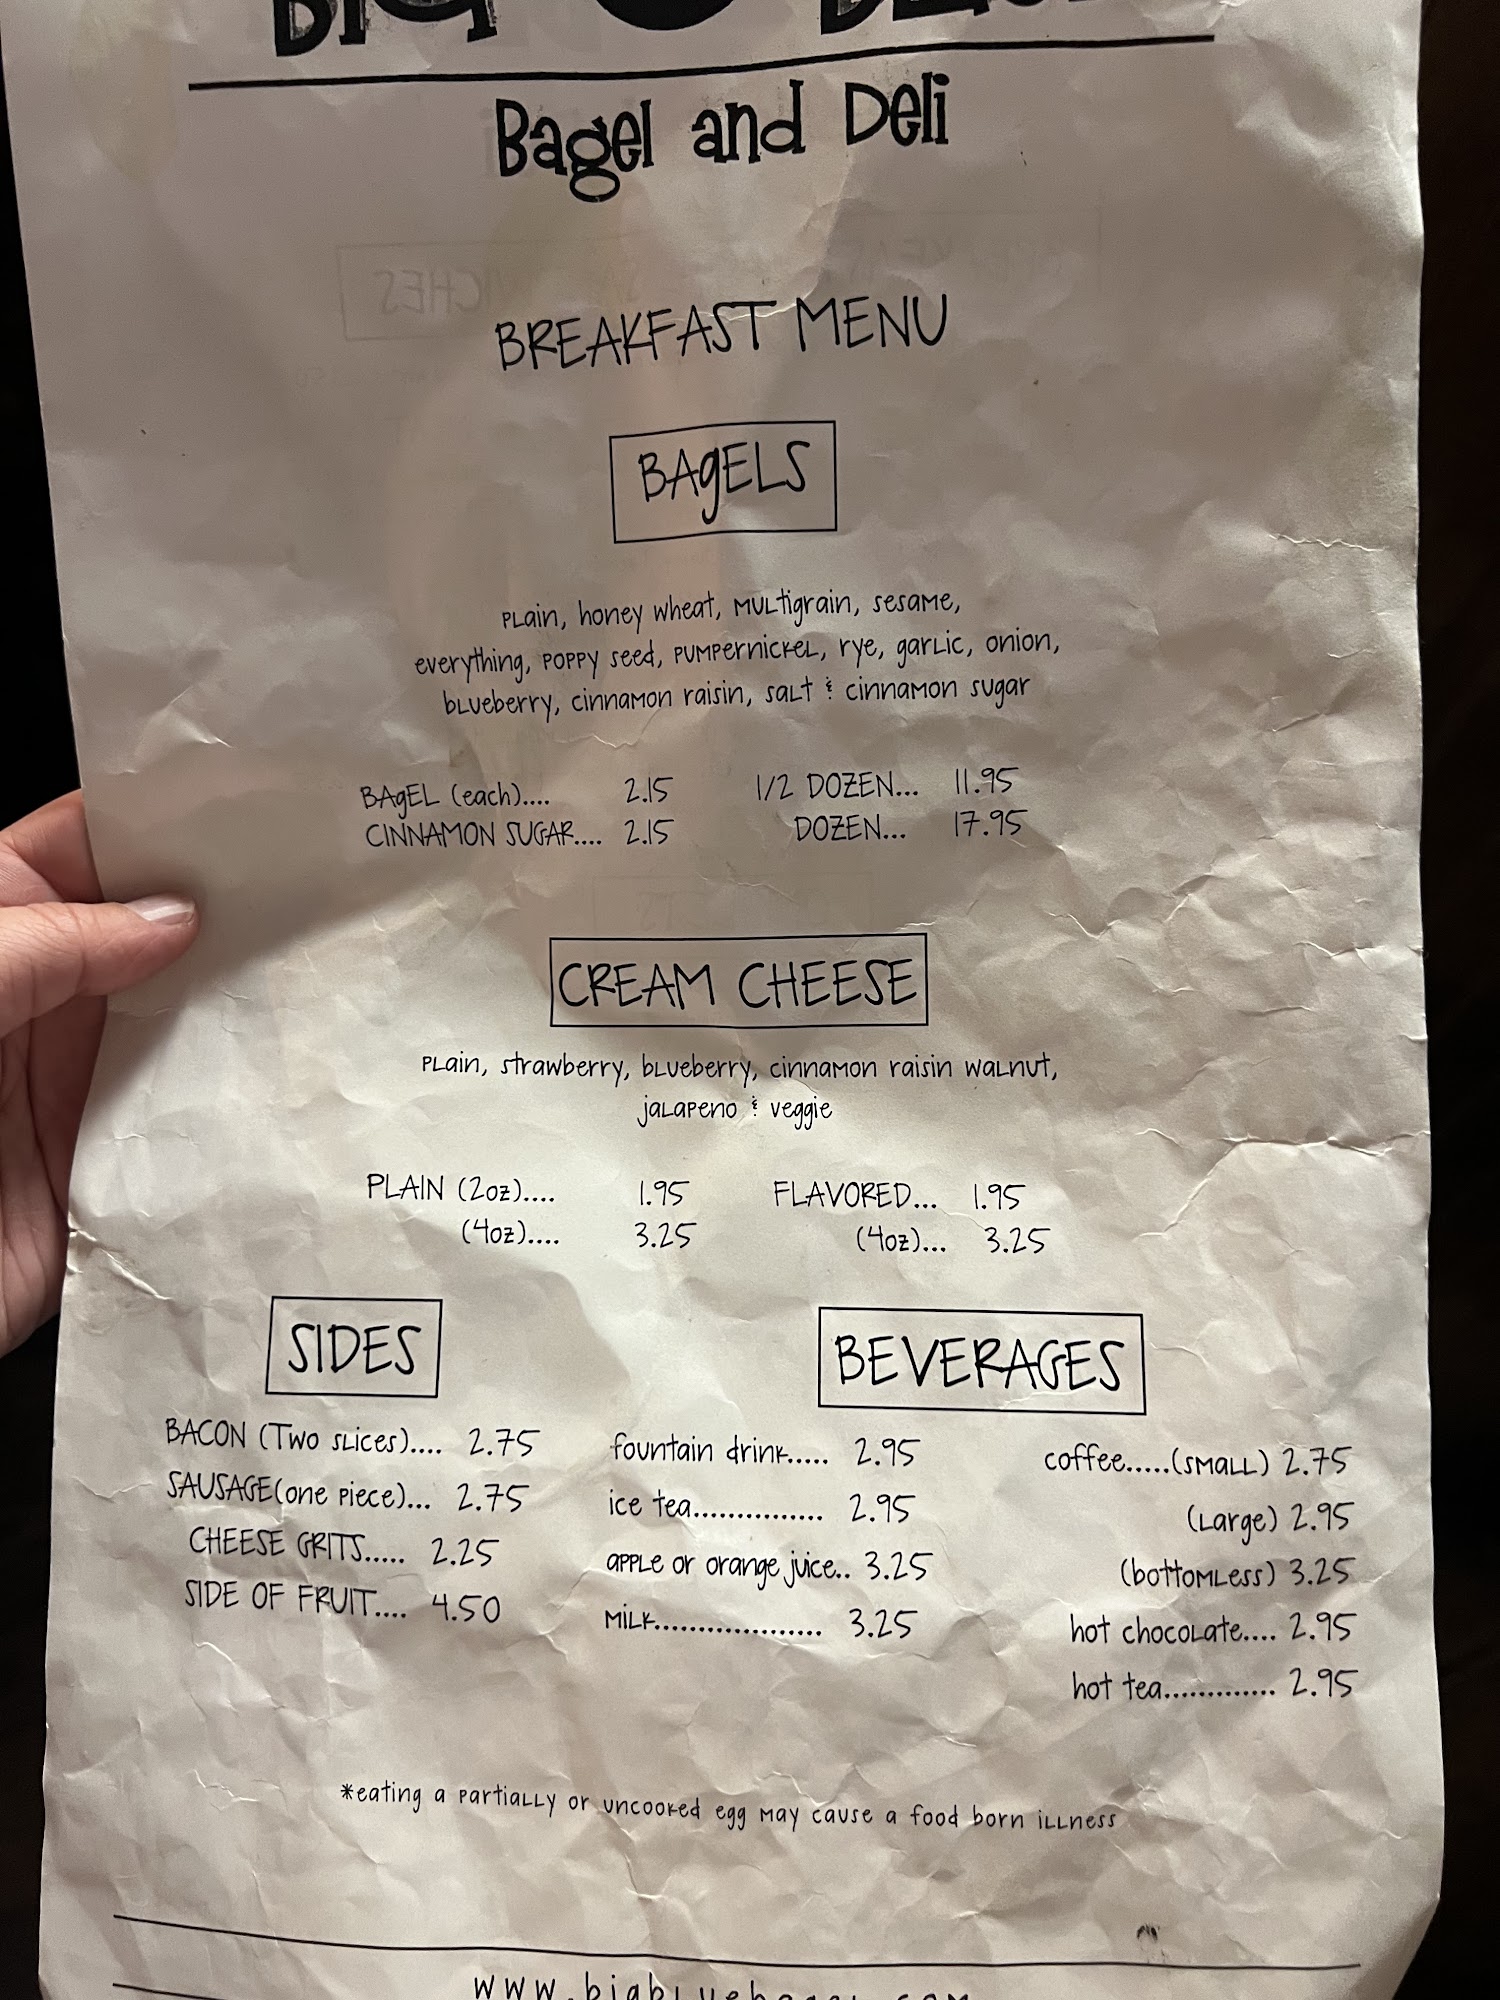 Bagel and Deli
BREAKFAST MENU
BAgELS
plain, honey wheat, multigrain, sesame,
everything, poppy seed, pumpernickel, rye, garlic, onion,
blueberry, cinnamon raisin, salt & cinnamon sugar
BAgEL (each).... 2.15 1/2 DOZEN... 11.95
CINNAMON SUGAR.... 2.15 DOZEN... 17.95
CREAM CHEESE
plain, strawberry, blueberry, cinnamon raisin walnut,
jalapeno & veggie
PLAIN (2oz).... 1.95 FLAVORED... 1.95
(4oz).... 3.25 (4oz)... 3.25
SIDES
BACON (Two slices).... 2.75
SAUSAGE(one piece)... 2.75
CHEESE GRITS..... 2.25
SIDE OF FRUIT.... 4.50
BEVERAGES
fountain drink..... 2.95
ice tea............... 2.95
apple or orange juice.. 3.25
milk................... 3.25
coffee.....(small) 2.75
(large) 2.95
(bottomless) 3.25
hot chocolate.... 2.95
hot tea............. 2.95
*eating a partially or uncooked egg may cause a food born illness